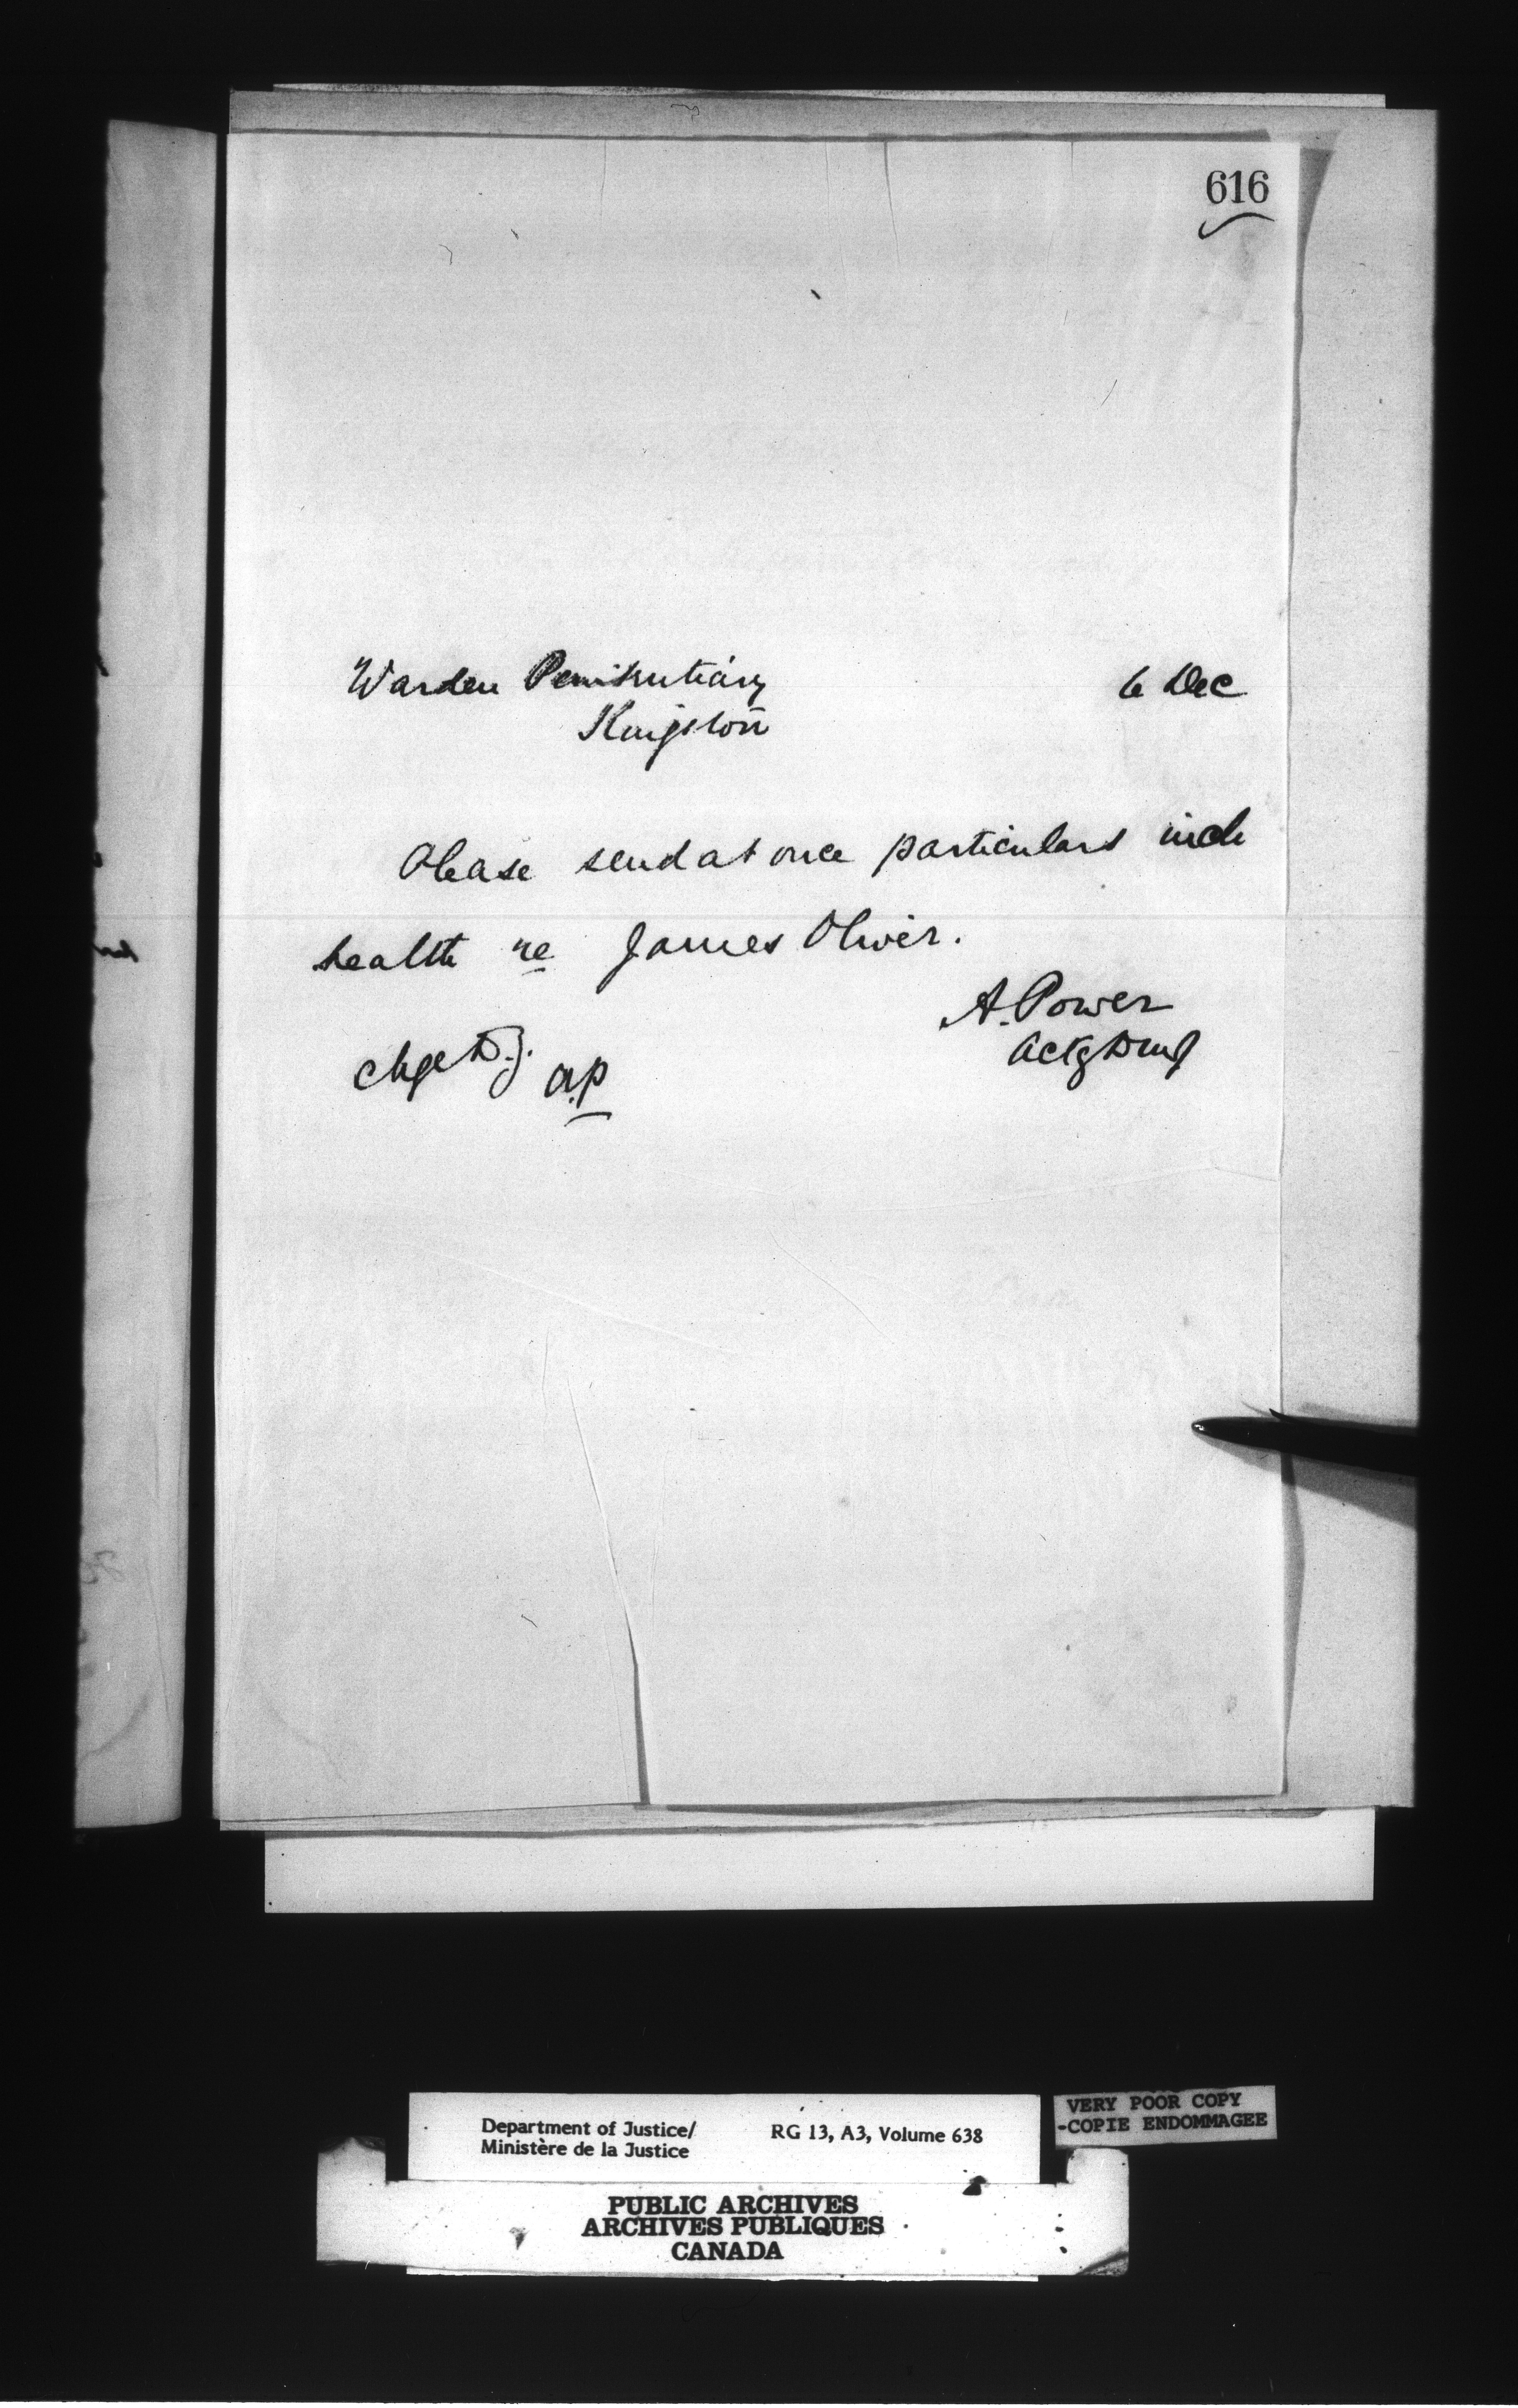 616
Warden Penitentiary 6 Dec
Kingston
Please send at once particulars incl
health re James Oliver.
A. Power
Actg DMJ
Chge D.J. A.P
Department of Justice/ RG 13, A3, Volume 638
Ministère de la Justice
VERY POOR COPY
-COPIE ENDOMMAGEE
PUBLIC ARCHIVES
ARCHIVES PUBLIQUES
CANADA